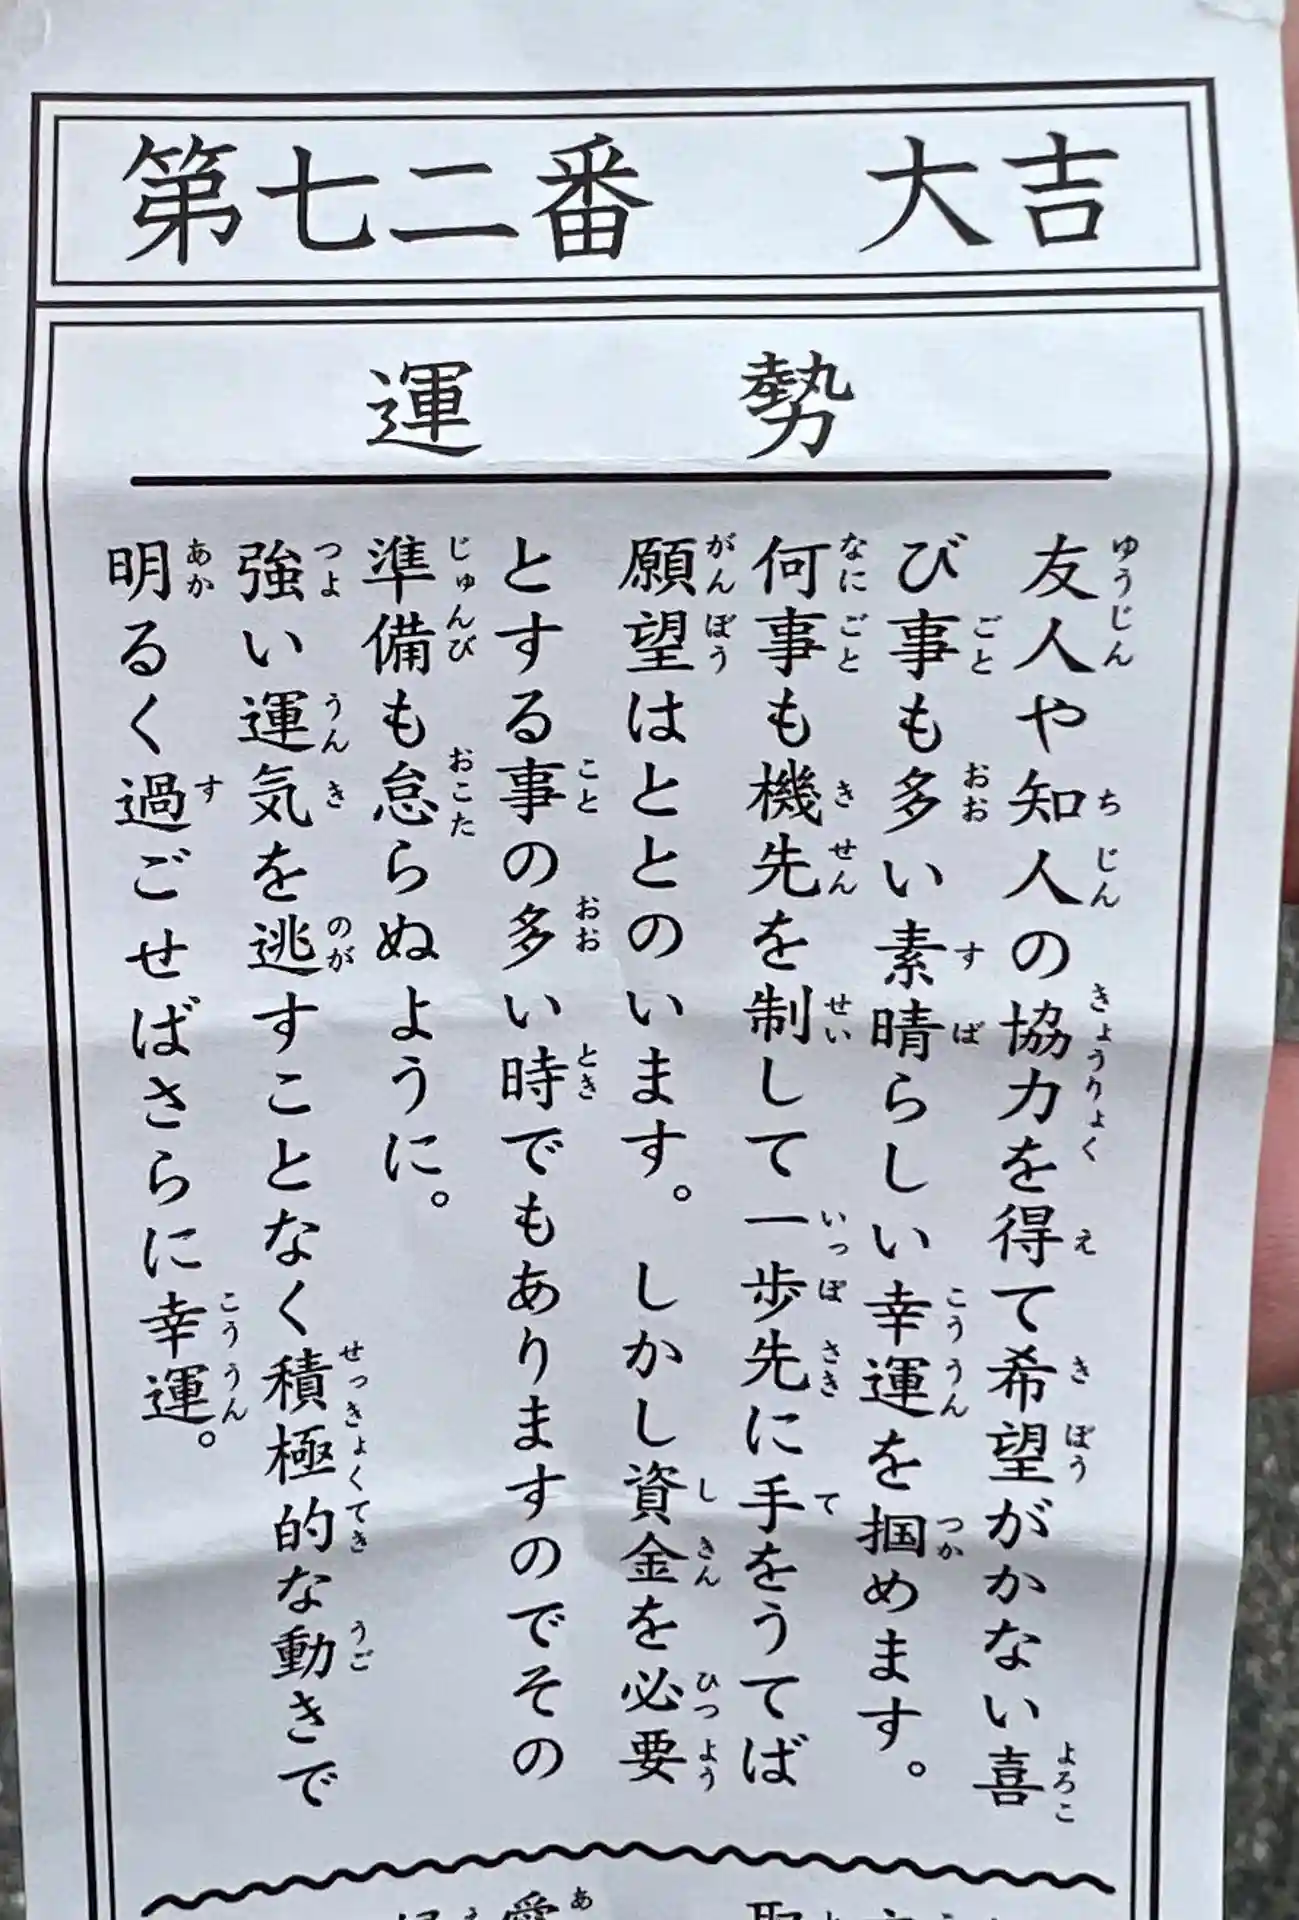 第七二番　大吉
運勢
友人や知人の協力を得て希望がかない喜
び事も多い素晴らしい幸運を掴めます。
何事も機先を制して一歩先に手をうてば
願望はととのいます。しかし資金を必要
とする事の多い時でもありますのでその
準備も怠らぬように。
強い運気を逃すことなく積極的な動きで
明るく過ごせばさらに幸運。